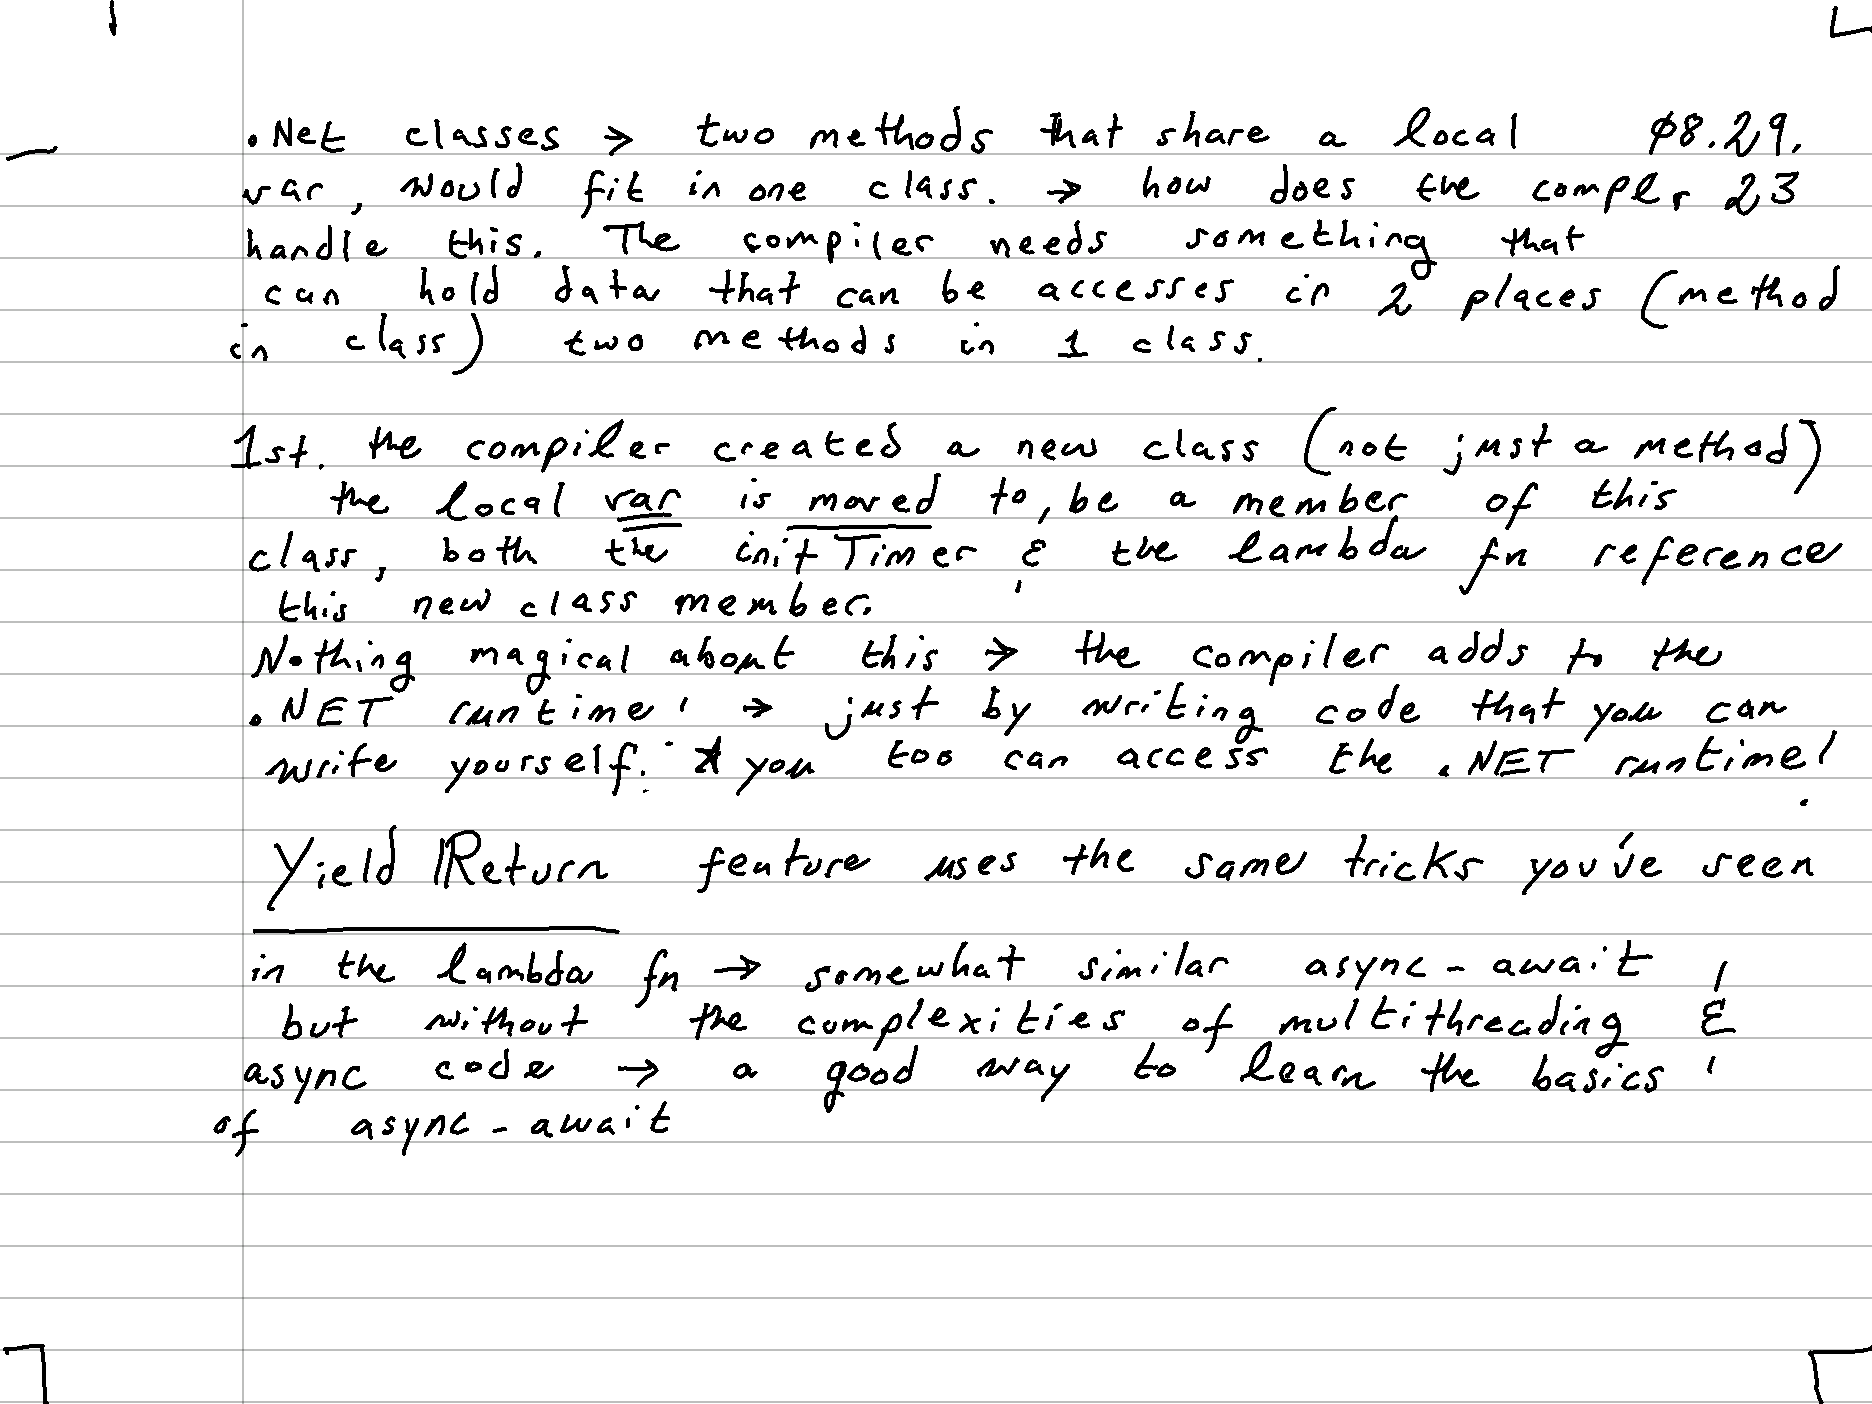 .Net classes → two methods that share a local ø8.29.
var, would fit in one class. → how does the complr 23
handle this. The compiler needs something that
can hold data that can be accesses in 2 places (method
in class) two methods in 1 class.
1st. the compiler created a new class (not just a method)
the local var is moved to, be a member of this
class, both the initTimer & the lambda fn reference
this new class member.
Nothing magical about this → the compiler adds to the
.NET runtime, → just by writing code that you can
write yourself. you too can access the .NET runtime!
Yield Return feature uses the same tricks you've seen
in the lambda fn → somewhat similar async-await,
but without the complexities of multithreading &
async code → a good way to learn the basics
of async-await